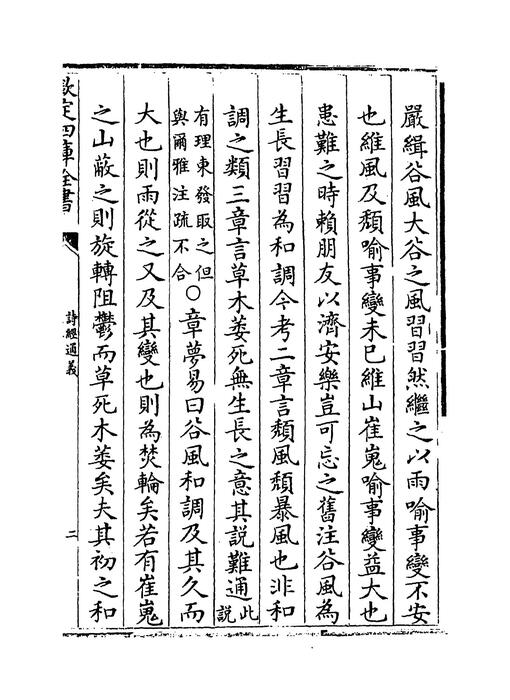 嚴緝谷風大谷之風習習然繼之以雨喻事變不安
也維風及頽喻事變未已維山崔嵬喻事變益大也
患難之時賴朋友以濟安樂豈可忘之舊注谷風為
生長習習為和調今考二章言頽風頽暴風也非和
調之類三章言草木萎死無生長之意其說難通此說
有理東發取之但與爾雅注疏不合○章夢易曰谷風和調及其久而
大也則雨從之又及其變也則為焚輪矣若有崔嵬
之山蔽之則旋轉阻鬱而草死木萎矣夫其初之和
欽定四庫全書
詩經通義
二